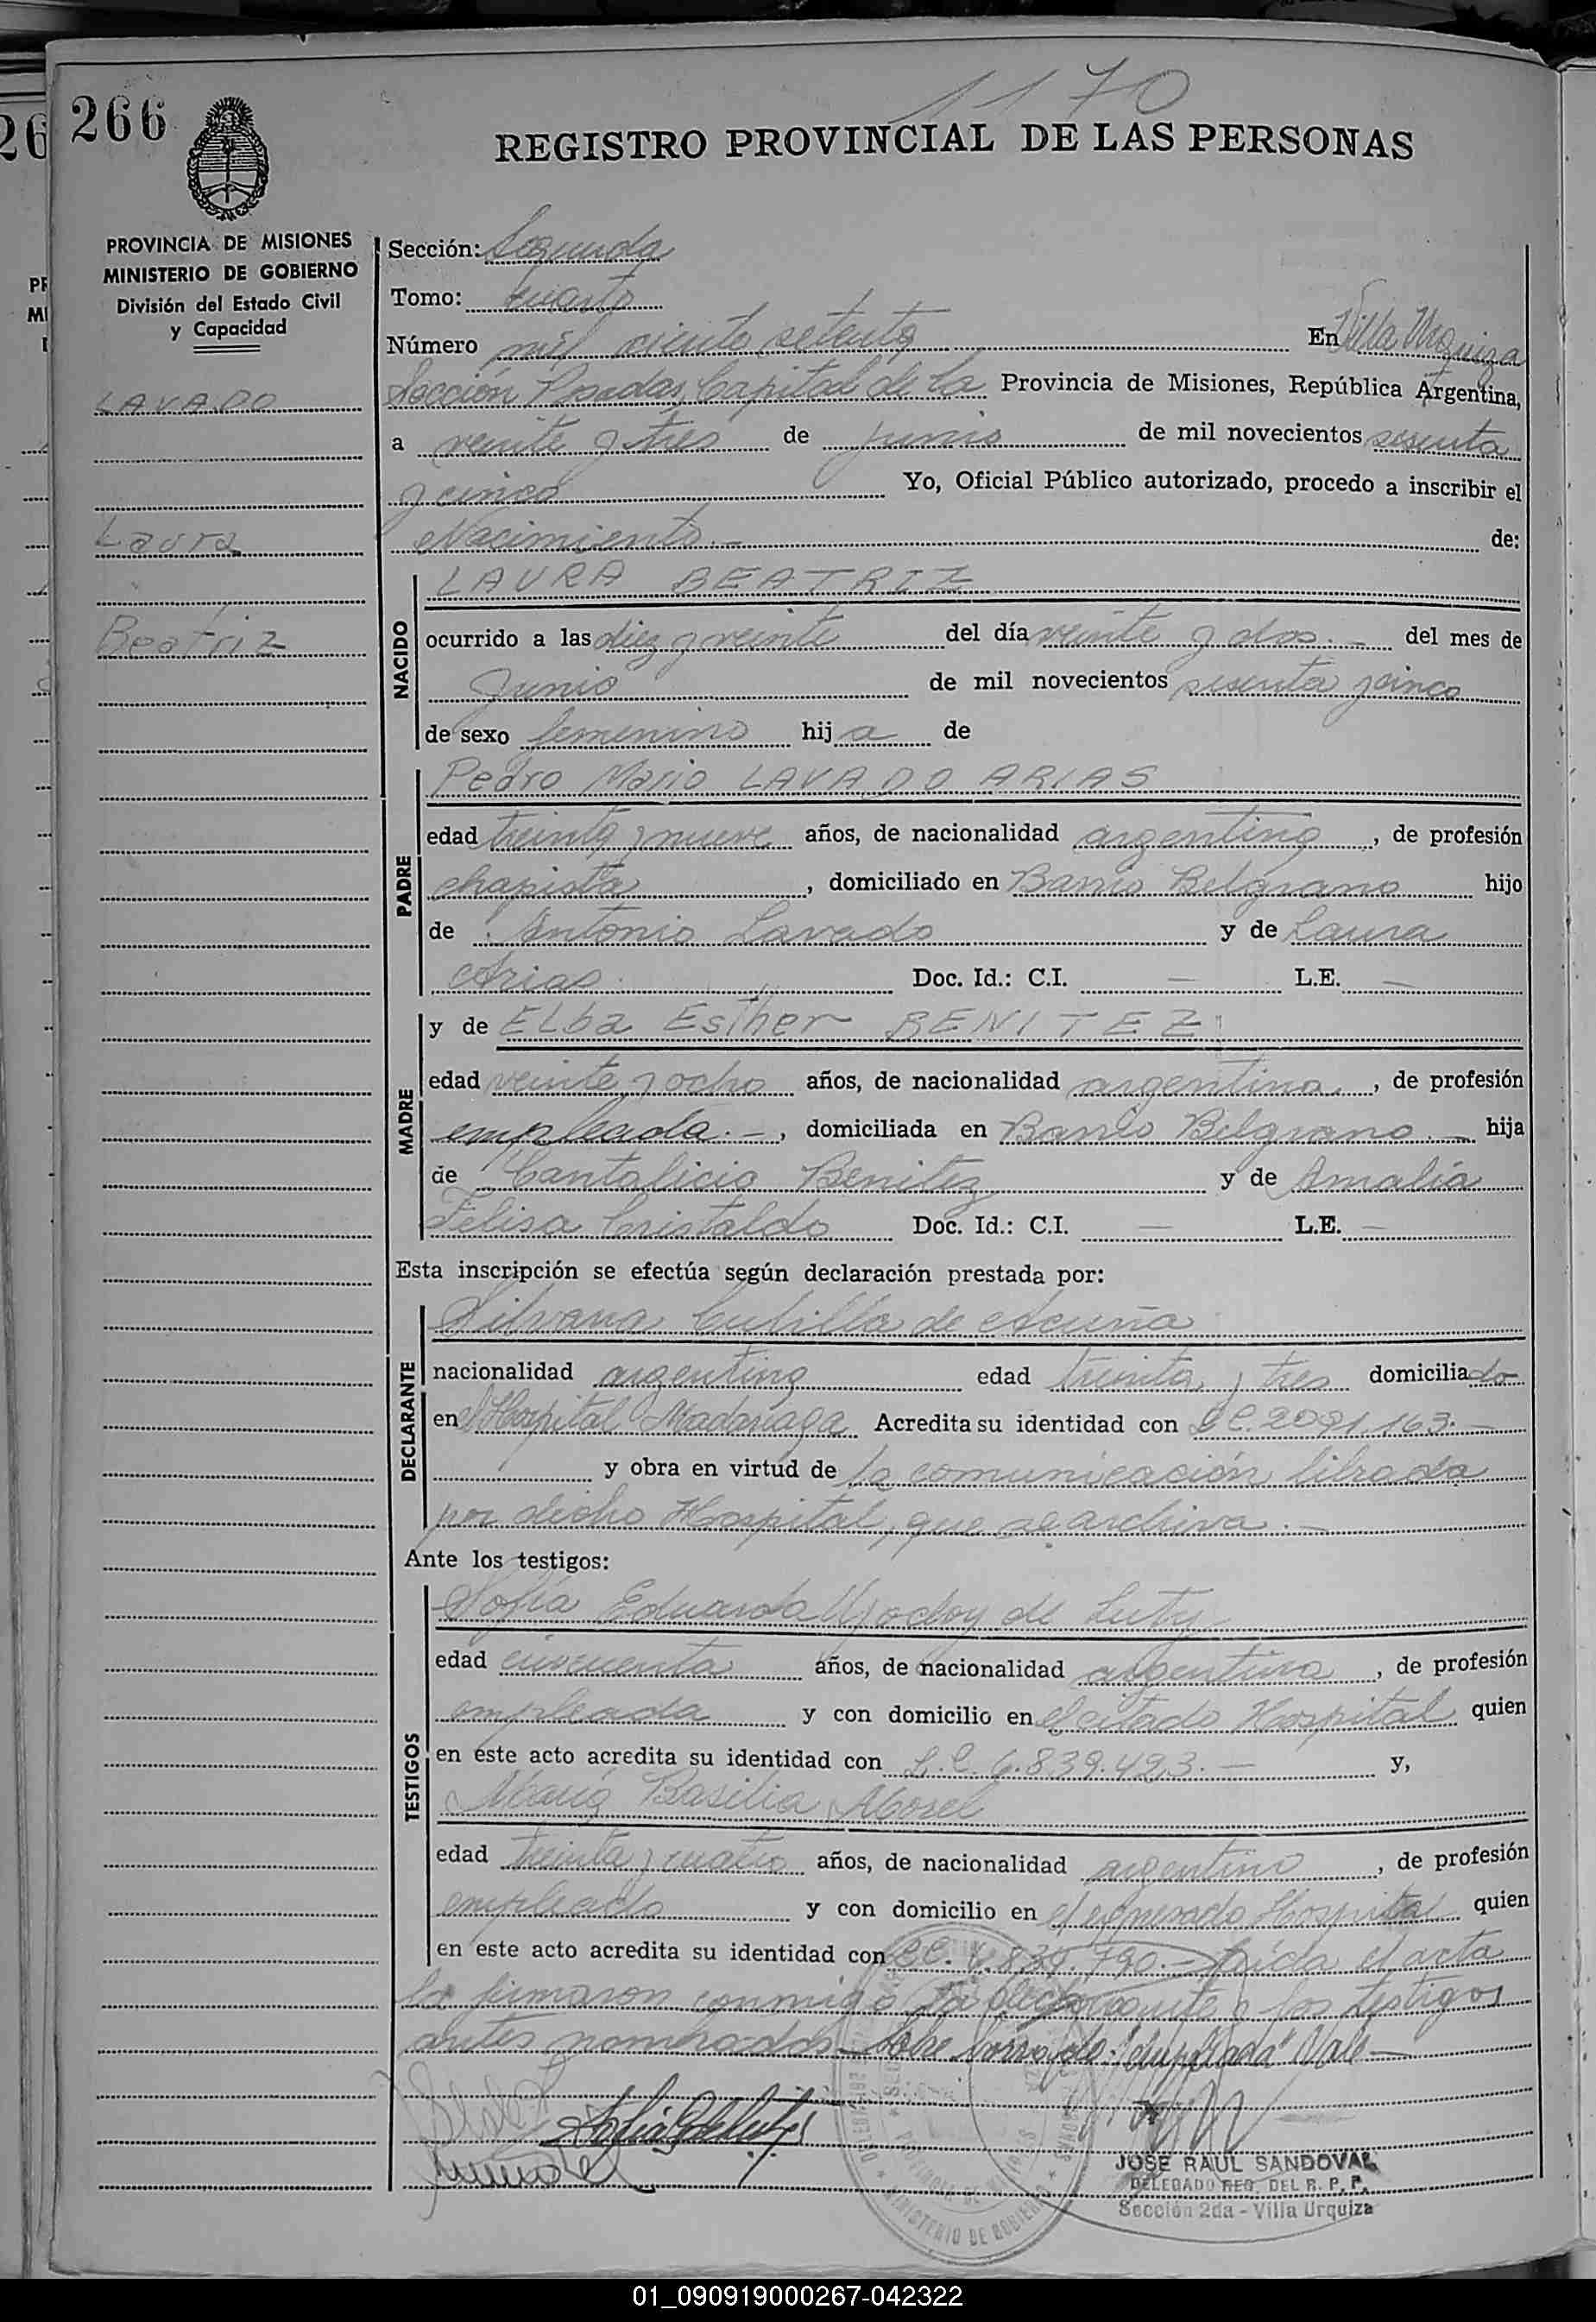 1170
266
REGISTRO PROVINCIAL DE LAS PERSONAS
PROVINCIA DE MISIONES
MINISTERIO DE GOBIERNO
División del Estado Civil
y Capacidad
LAVADO
Laura
Beatriz
Sección: Segunda
Tomo: cuarto
Número mil ciento setenta En Villa Urquiza
Sección Posadas, Capital de la Provincia de Misiones, República Argentina,
a veinte y tres de junio de mil novecientos sesenta
y cinco Yo, Oficial Público autorizado, procedo a inscribir el
Nacimiento.- de:
NACIDO
LAURA BEATRIZ
ocurrido a las diez y veinte del día veinte y dos.- del mes de
Junio de mil novecientos sesenta y cinco
de sexo femenino hija de
PADRE
Pedro Mario LAVADO ARIAS
edad treinta y nueve años, de nacionalidad argentino, de profesión
chapista, domiciliado en Barrio Belgrano hijo
de Antonio Lavado y de Laura
Arias. Doc. Id.: C.I. — L.E. —
MADRE
y de Elba Esther BENITEZ
edad veinte y ocho años, de nacionalidad argentina, de profesión
empleada.-, domiciliada en Barrio Belgrano.- hija
de Cantalicio Benitez y de Amalia
Felisa Cristaldo Doc. Id.: C.I. — L.E. —
Esta inscripción se efectúa según declaración prestada por:
DECLARANTE
Silvana Cubilla de Acuña
nacionalidad argentina edad treinta y tres domiciliado
en el Hospital Madariaga Acredita su identidad con L.C. 2091.163.-
y obra en virtud de la comunicación librada
por dicho Hospital, que se archiva.-
Ante los testigos:
TESTIGOS
Sofía Eduarda Godoy de Luty
edad cincuenta años, de nacionalidad argentina, de profesión
empleada y con domicilio en el citado Hospital quien
en este acto acredita su identidad con L.C. 6.839.423.- y,
María Basilia Morel
edad treinta y cuatro años, de nacionalidad argentino, de profesión
empleado y con domicilio en el expresado Hospital quien
en este acto acredita su identidad con .839.790.- Leída el acta
la firmaron conmigo la declarante y los testigos
antes nombrados.- Sobre borrado: "empleada" Vale-
JOSE RAUL SANDOVAL
DELEGADO REG. DEL R. P. P.
Sección 2da - Villa Urquiza
MINISTERIO DE GOBIERNO
01_090919000267-042322